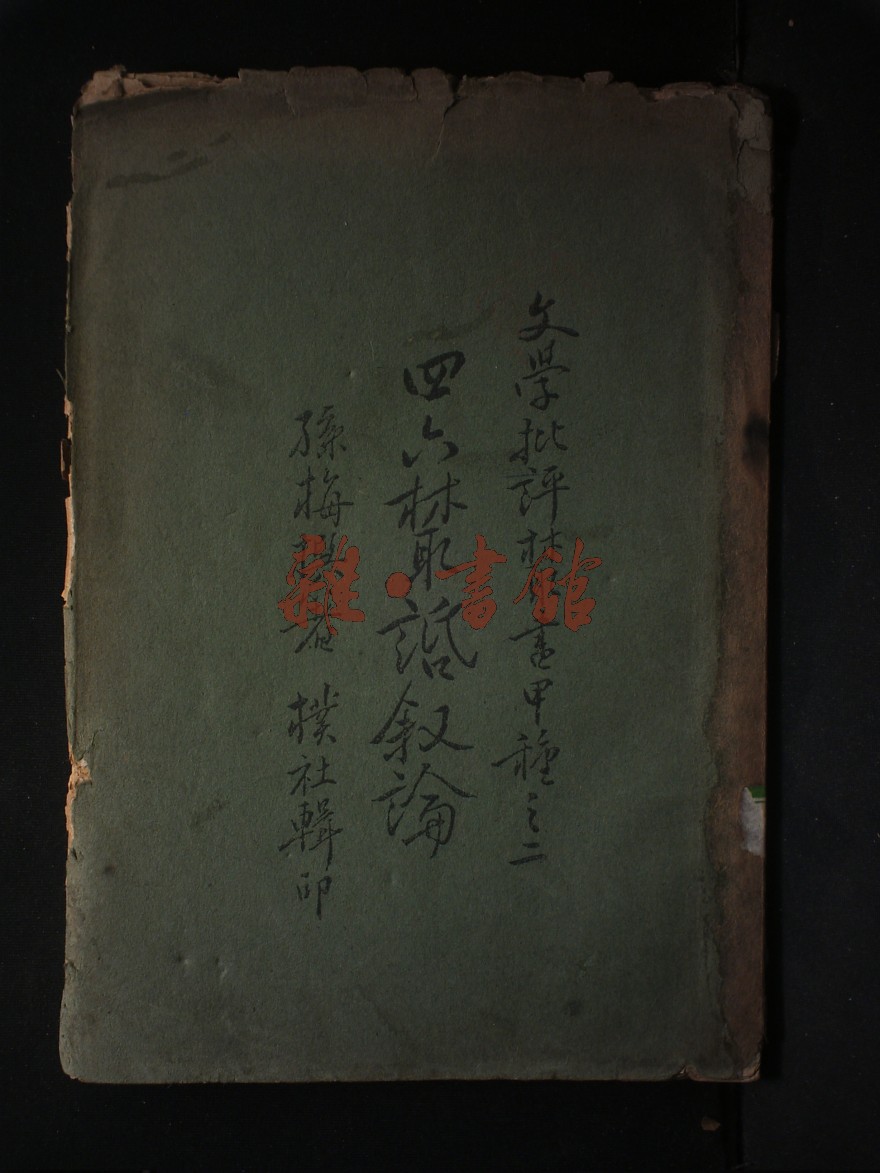 文學批評叢書甲種之二
四六叢話叙論
孫梅著 樸社輯印
雜·書館